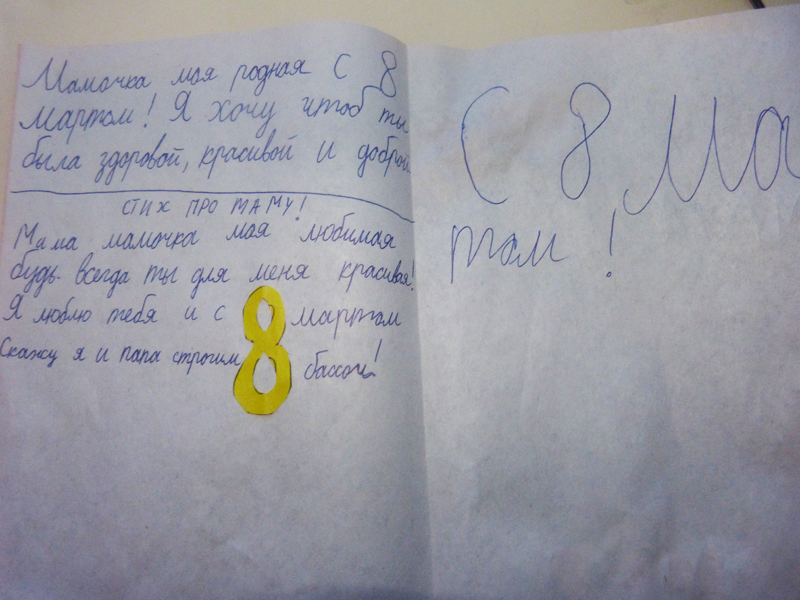 Мамочка моя родная С 8
мартом! Я хочу чтоб ты
была здоровой, красивой и доброй
СТИХ ПРО МАМУ!
Мама мамочка моя любимая
будь всегда ты для меня красивая!
Я люблю тебя и с 8 мартом
Скажу я и папа строгим бассом!
С 8 Ма
том!